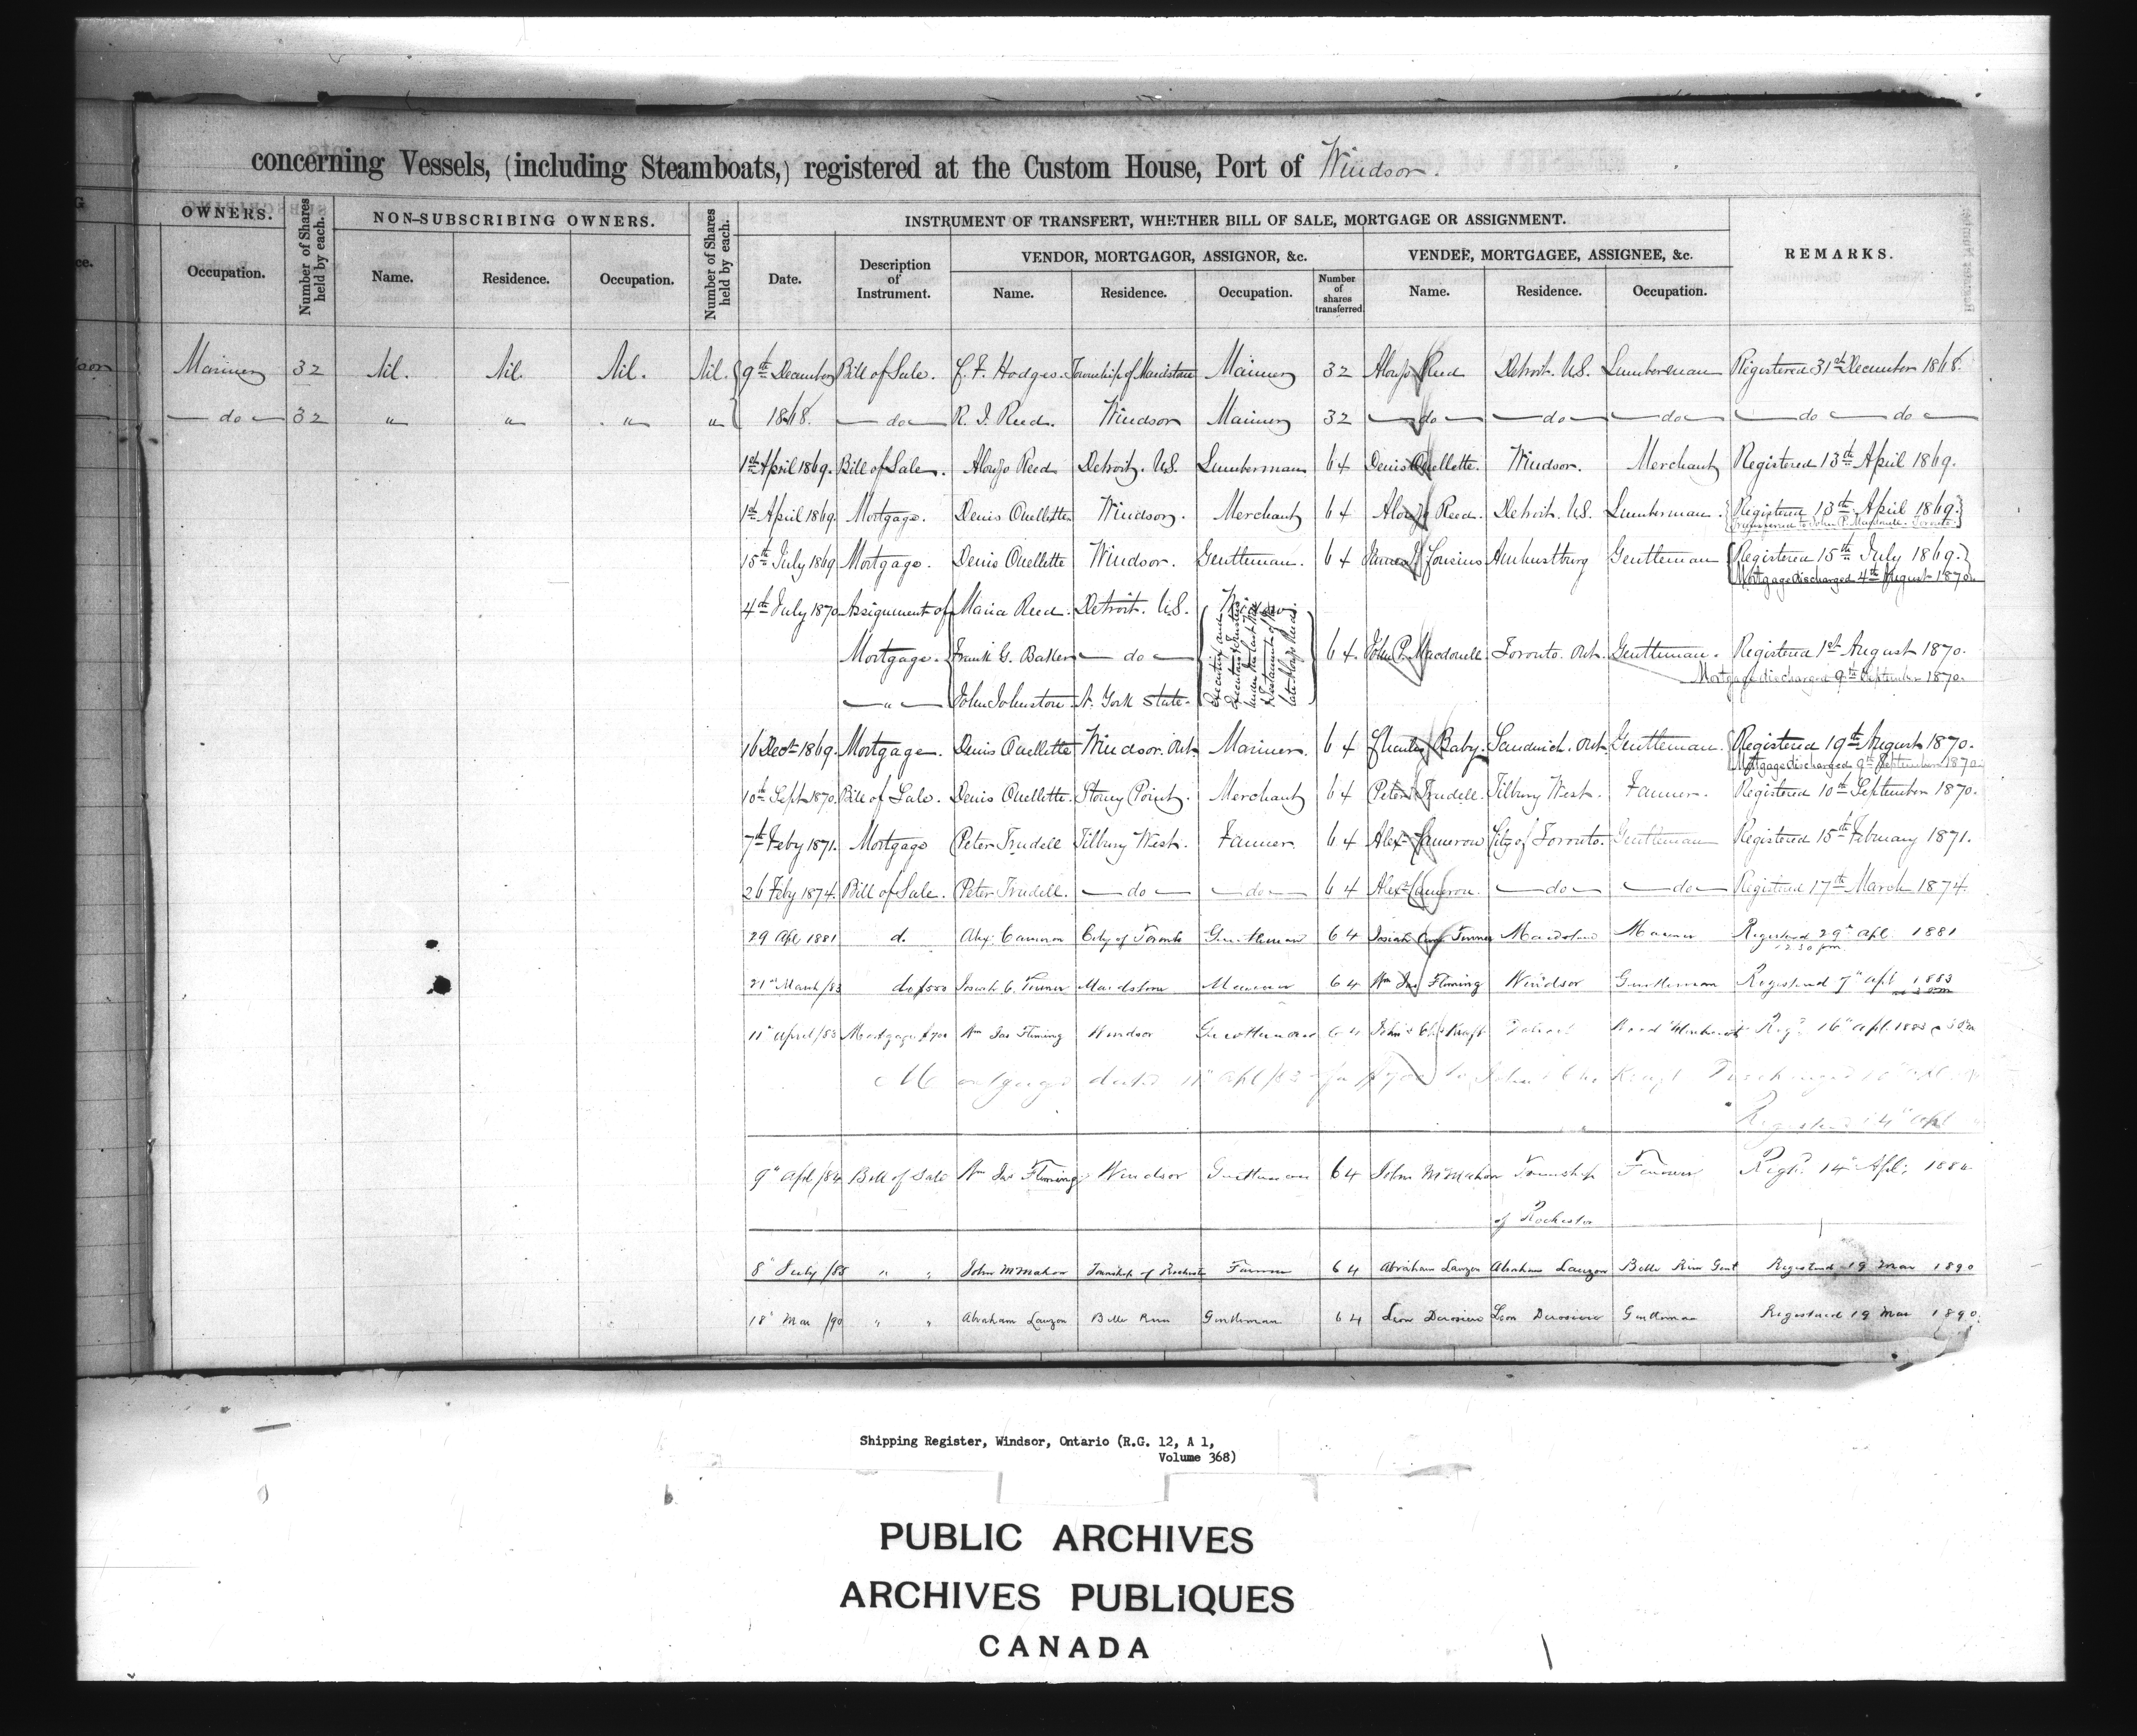 concerning Vessels, (including Steamboats,) registered at the Custom House, Port of Windsor.
OWNERS.
Number of Shares held by each.
NON-SUBSCRIBING OWNERS.
Number of Shares held by each.
INSTRUMENT OF TRANSFERT, WHETHER BILL OF SALE, MORTGAGE OR ASSIGNMENT.
REMARKS.
VENDOR, MORTGAGOR, ASSIGNOR, &c.
VENDEE, MORTGAGEE, ASSIGNEE, &c.
Occupation. Name. Residence. Occupation. Date. Description of Instrument. Name. Residence. Occupation. Number of shares transferred. Name. Residence. Occupation.
Mariner 32 Nil. Nil. Nil. Nil. 9th December Bill of Sale. C. F. Hodges. Township of Maidstone Mariner 32 Alonzo Reed Detroit. U.S. Lumberman Registered 31st December 1868.
do 32 " " " " 1868. do R. I. Reed. Windsor Mariner 32 do do do do do
1st April 1869. Bill of Sale. Alonzo Reed Detroit. U.S. Lumberman 64 Denis Ouellette. Windsor. Merchant Registered 13th April 1869.
1st April 1869. Mortgage. Denis Ouellette Windsor. Merchant 64 Alonzo Reed. Detroit. U.S. Lumberman. Registered 13th April 1869.
transferred to John P. Macdonell. Toronto.
15th July 1869 Mortgage. Denis Ouellette Windsor. Gentleman. 64 Cousins Amherstburg Gentleman Registered 15th July 1869.
Mortgage discharged 4th August 1870.
4th July 1870 Assignment of Maria Reed. Detroit. U.S. Widow.
Executrix and Executors & Trustees under the last Will & Testament of the late Alonzo Reed.
Mortgage. Frank G. Baker do 64. John P. Macdonell Toronto. Ont. Gentleman. Registered 1st August 1870.
Mortgage discharged 9th September 1870.
" John Johnston. N. York State.
16 Decr 1869. Mortgage. Denis Ouellette Windsor. Ont. Mariner. 64 Charles Baby. Sandwich. Ont. Gentleman. Registered 19th August 1870.
Mortgage discharged 9th September 1870.
10th Sept 1870. Bill of Sale. Denis Ouellette. Stoney Point. Merchant 64 Peter Trudell. Tilbury West. Farmer. Registered 10th September 1870.
7th Feby 1871. Mortgage Peter Trudell Tilbury West. Farmer. 64 Alexr Cameron City of Toronto. Gentleman Registered 15th February 1871.
26 Feby 1874. Bill of Sale. Peter Trudell. do do 64 Alexr Cameron. do do Registered 17th March 1874.
29 Apl 1881 d. Alex. Cameron City of Toronto Gentleman 64 Josiah Turner Maidstone Mariner Registered 29th Apl. 1881
12 30 pm
21st March/83 do $500 Josiah C. Turner Maidstone Mariner 64 Wm Jas Fleming Windsor Gentleman Registered 7th Apl 1883
11th April/83 Mortgage $700 Wm Jas Fleming Windsor Gentleman 64 Kraft Regd. 16th Apl. 1883
Mortgage dated 11th Apl/83 for $700 to John Kraft Discharged 10th Apl
Registered 14th Apl
9th Apl/84 Bill of Sale Wm Jas Fleming Windsor Gentleman 64 John McMahon Township Farmer Regd. 14th Apl: 1884
of Rochester
8th July/85 " " John McMahon Township of Rochester Farmer 64 Abraham Lauzon Abraham Lauzon Belle River Gent Registered 19 Mar 1890
18th Mar/90 " " Abraham Lauzon Belle River Gentleman 64 Leon Derosiere Leon Derosiere Gentleman Registered 19 Mar 1890.
Shipping Register, Windsor, Ontario (R.G. 12, A 1,
Volume 368)
PUBLIC ARCHIVES
ARCHIVES PUBLIQUES
CANADA